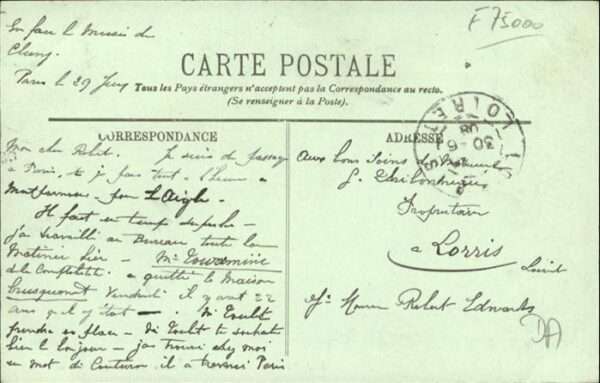 F 75000
En face le Musée de
Cluny.
Paris le 29 Juin
CARTE POSTALE
Tous les Pays étrangers n'acceptent pas la Correspondance au recto.
(Se renseigner à la Poste).
CORRESPONDANCE
ADRESSE
LOIRET
Mon cher Robert. Je suis de passage
à Paris, et je pars tout à l'heure à
Montparnasse pour L'Aigle.
Il fait un temps superbe
j'ai travaillé au Bureau toute la
Matinée hier
de la Comptabilité a quitté la Maison
brusquement Vendredi il y avait 22
ans qu'il y était
prendre sa place
le bonjour j'ai trouvé chez moi
un mot de il a traversé Paris
Aux bons Soins de Monsieur
Propriétaire
à Lorris
Loiret
Pr Monsieur Robert Edwards
DA